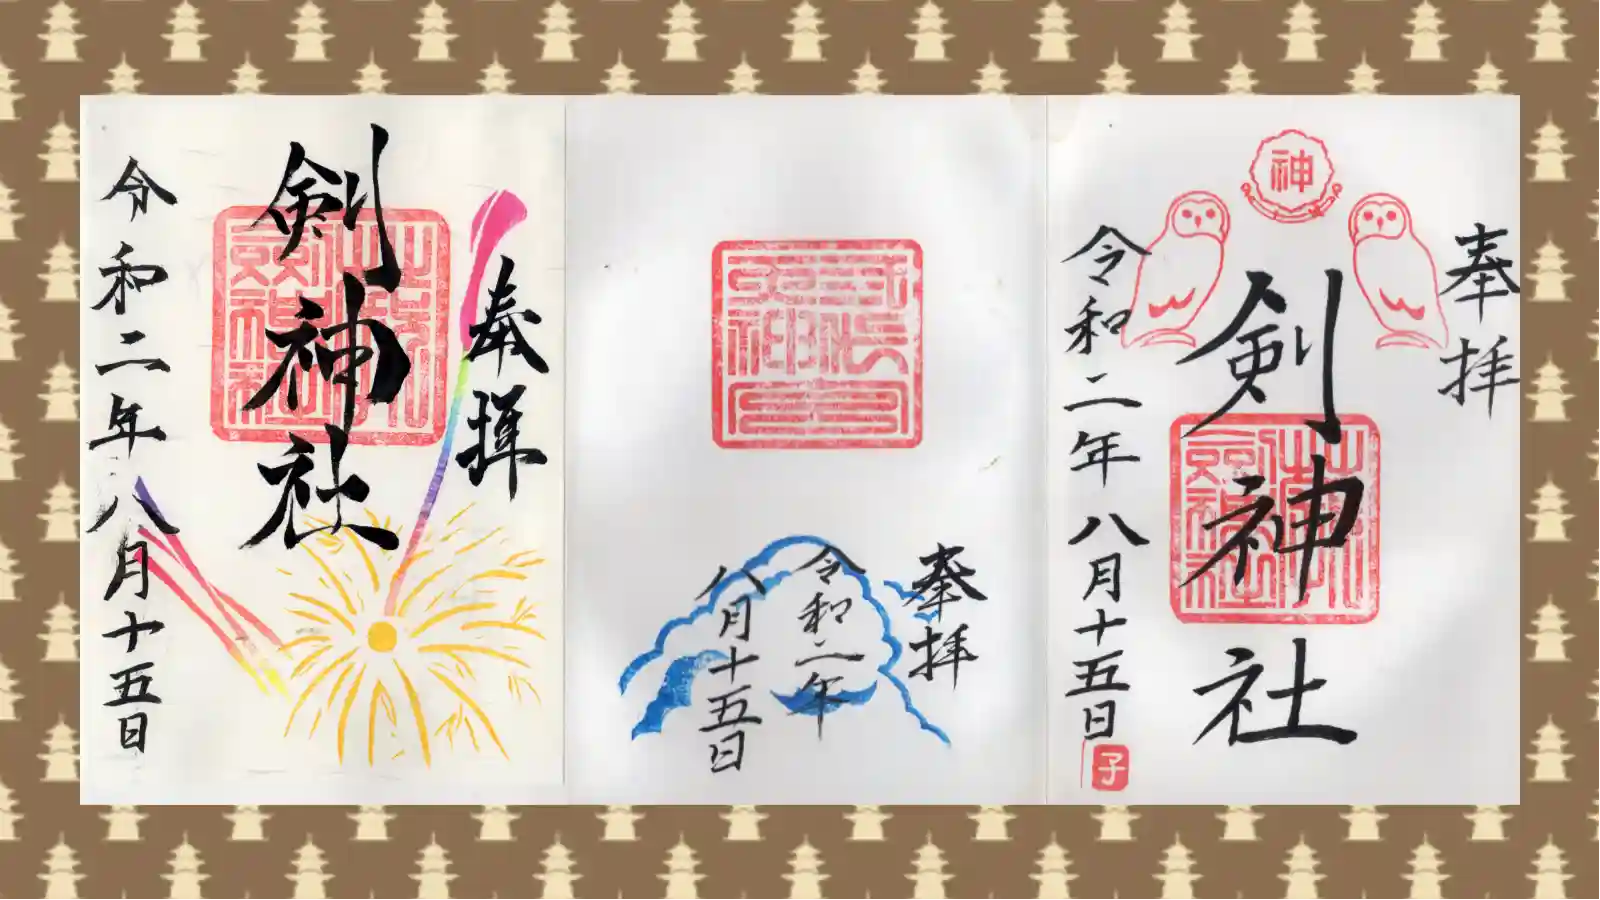 奉拝
剣神社
令和二年八月十五日
奉拝
令和二年
八月十五日
神
奉拝
剣神社
令和二年八月十五日
子